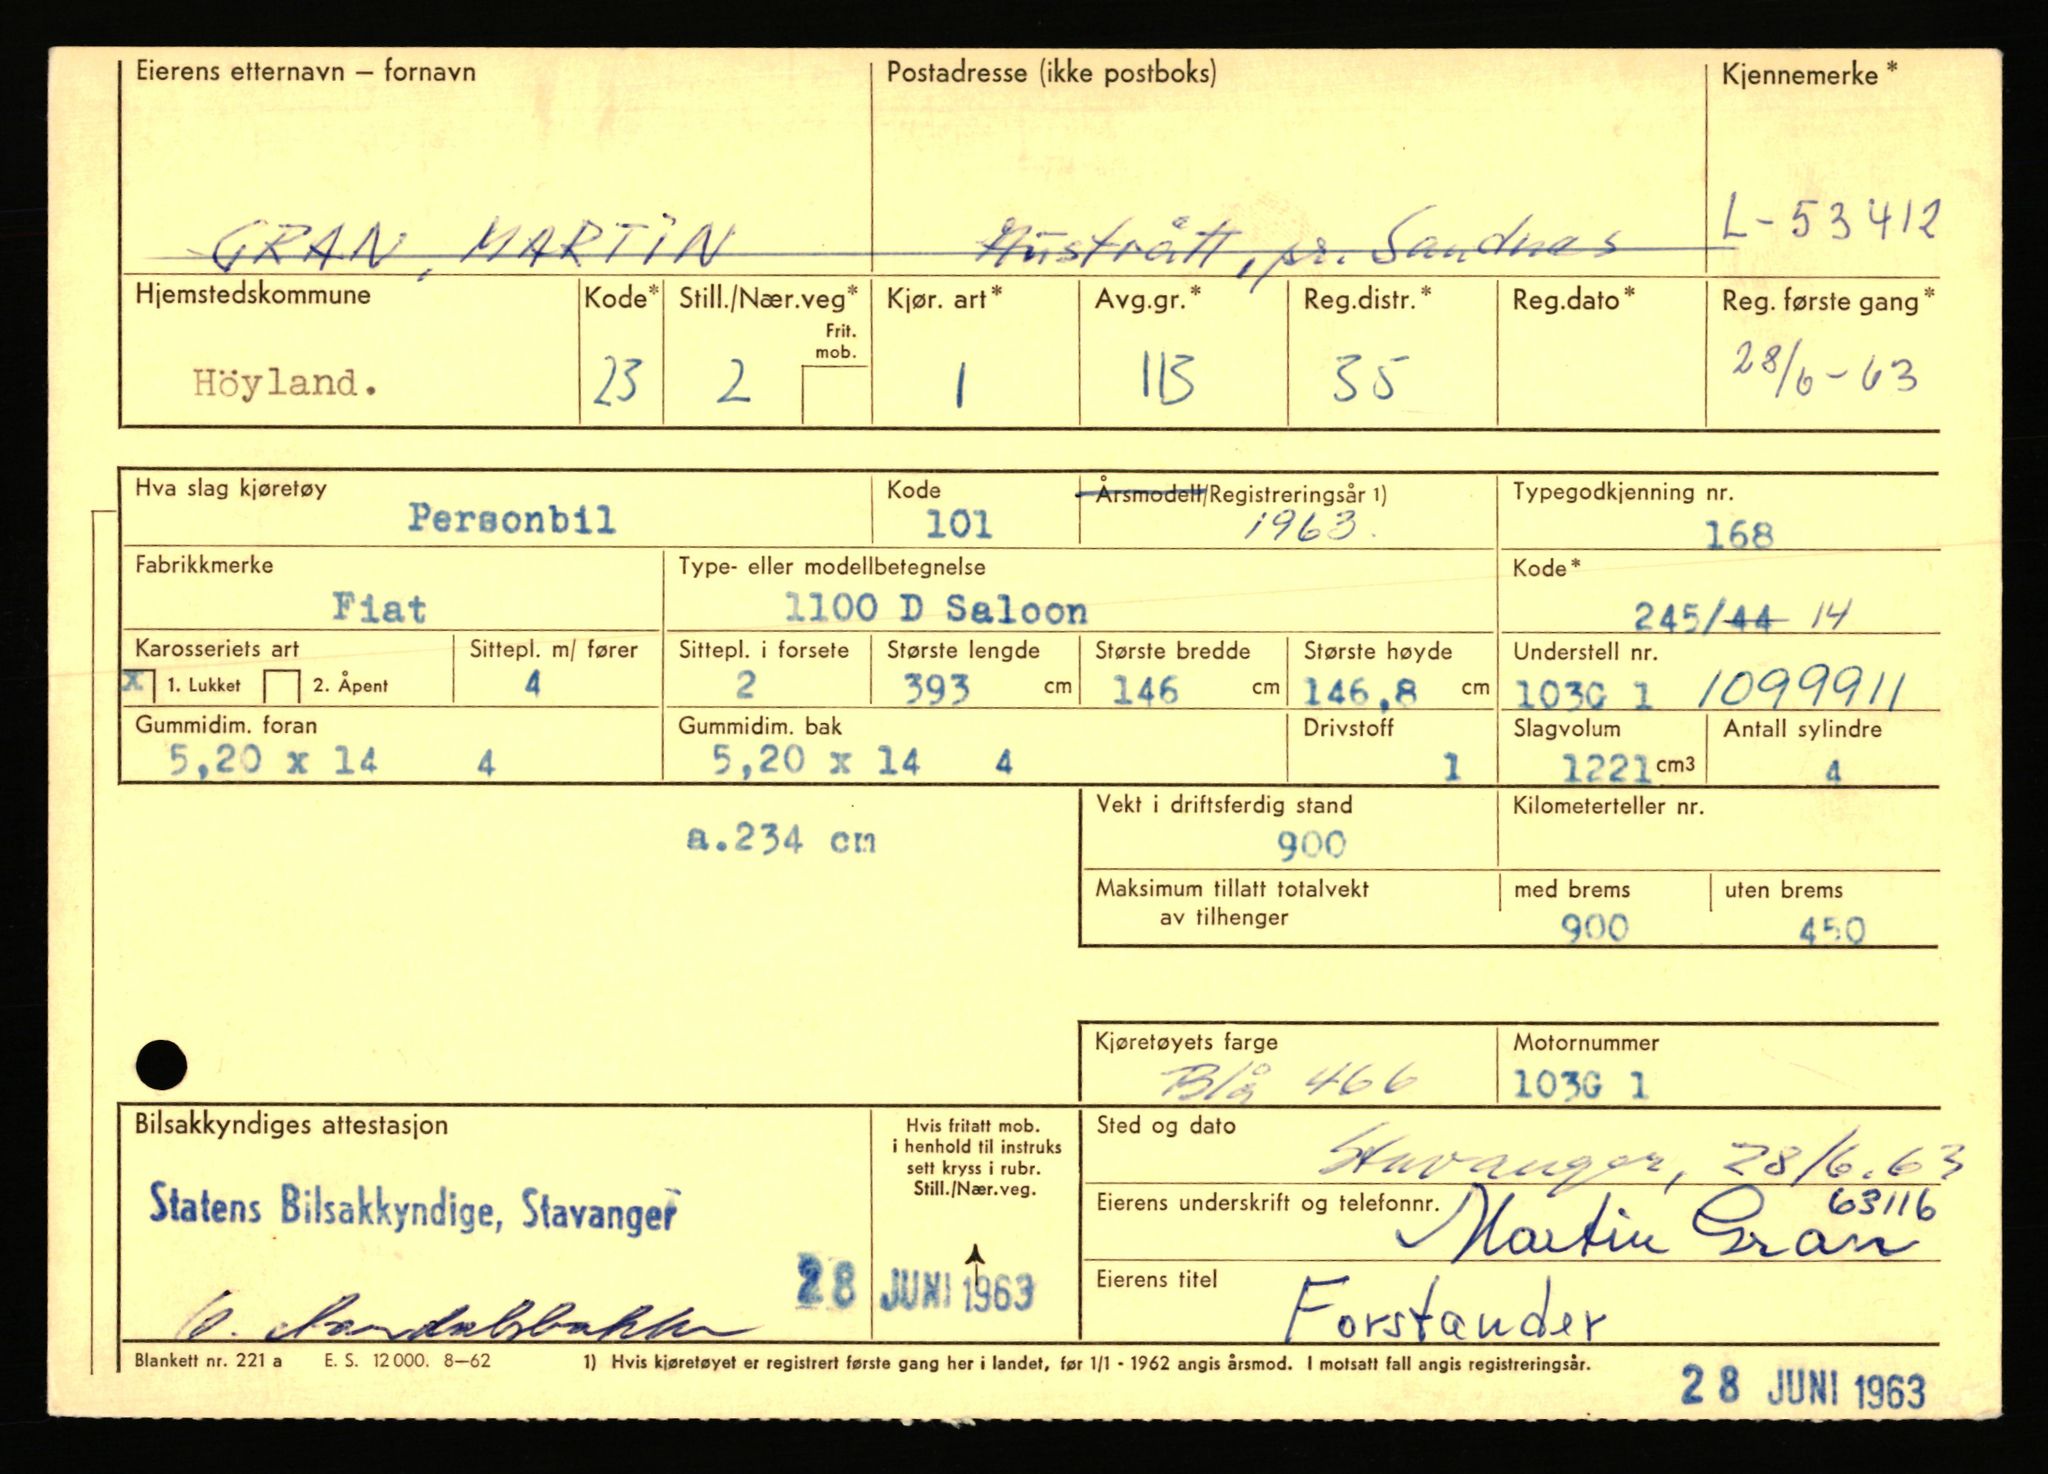 Eierens etternavn – fornavn Postadresse (ikke postboks) Kjennemerke *
GRAN, MARTIN Hustrått, pr. Sandnes L-53412
Hjemstedskommune Kode* Still./Nær.veg* Kjør. art* Avg.gr.* Reg.distr.* Reg.dato* Reg. første gang*
Frit.
mob.
Höyland. 23 2 1 113 35 28/6-63
Hva slag kjøretøy Kode Årsmodell/Registreringsår 1) Typegodkjenning nr.
Personbil 101 1963. 168
Fabrikkmerke Type- eller modellbetegnelse Kode*
Fiat 1100 D Saloon 245/44 14
Karosseriets art Sittepl. m/ fører Sittepl. i forsete Største lengde Største bredde Største høyde Understell nr.
x 1. Lukket 2. Åpent 4 2 393 cm 146 cm 146,8 cm 103G 1 1099911
Gummidim. foran Gummidim. bak Drivstoff Slagvolum Antall sylindre
5,20 x 14 4 5,20 x 14 4 1 1221 cm3 4
Vekt i driftsferdig stand Kilometerteller nr.
a.234 cm 900
Maksimum tillatt totalvekt med brems uten brems
av tilhenger 900 450
Kjøretøyets farge Motornummer
Blå 466 103G 1
Bilsakkyndiges attestasjon Hvis fritatt mob. Sted og dato
i henhold til instruks
sett kryss i rubr.
Still./Nær.veg.
Stavanger, 28/6.63
Statens Bilsakkyndige, Stavanger Eierens underskrift og telefonnr. 63116
Martin Gran
28 JUNI 1963 Eierens titel
Forstander
Blankett nr. 221 a E. S. 12 000. 8–62 1) Hvis kjøretøyet er registrert første gang her i landet, før 1/1 - 1962 angis årsmod. I motsatt fall angis registreringsår.
28 JUNI 1963